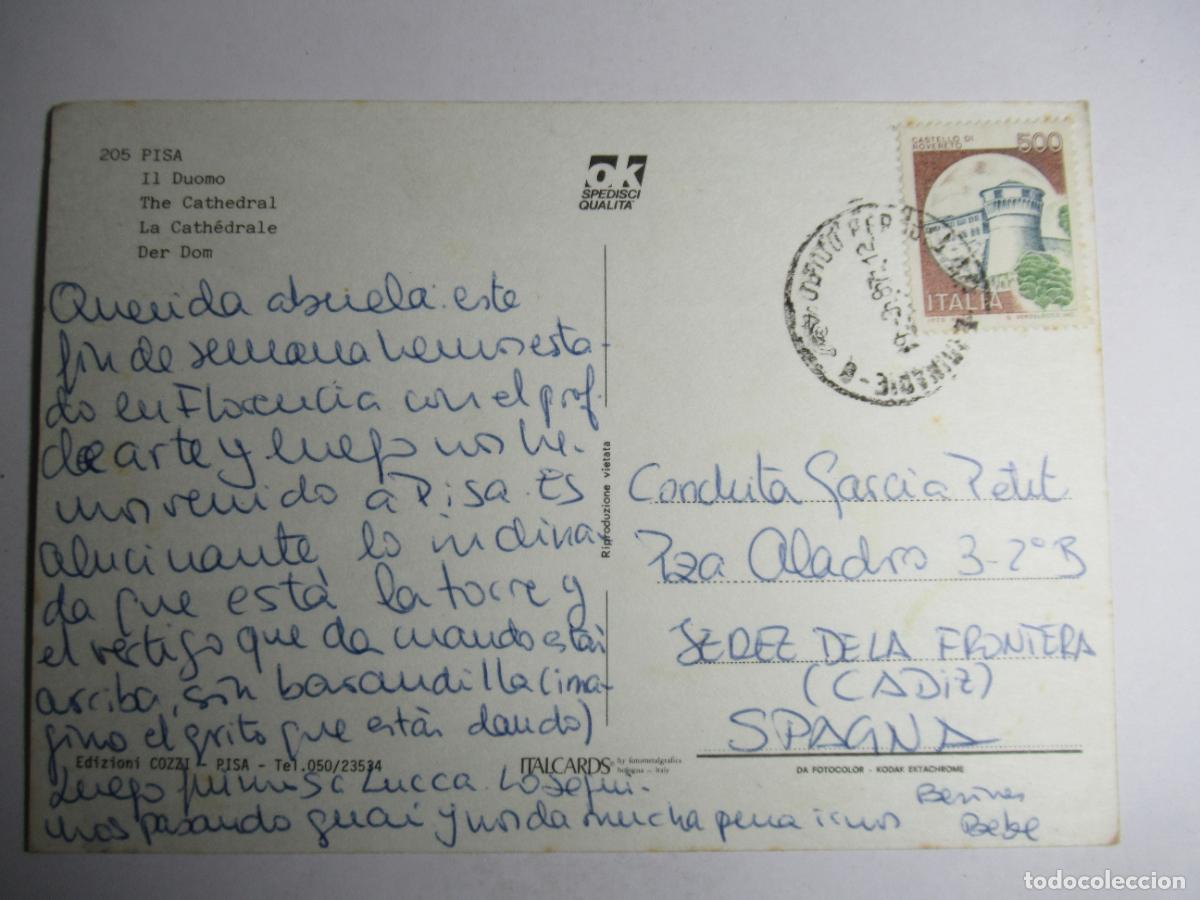 205 PISA
Il Duomo
The Cathedral
La Cathédrale
Der Dom
ok
SPEDISCI
QUALITA'
CASTELLO DI
ROVERETO
500
ITALIA
Querida abuela: este
fin de semana hemos esta-
do en Florencia con el prof.
de arte y luego nos he-
mos venido a Pisa. Es
alucinante lo inclina-
da que está la torre y
el vértigo que da cuando estás
arriba, sin barandilla (ima-
gino el grito que estás dando)
Luego fuimos a Lucca. Lo segui-
mos pasando guai y nos da mucha pena irnos
Besines
Bebe
Riproduzione vietata
Conchita Garcia Petit
Pza Aladro 3-2º B
JEREZ DE LA FRONTERA
(CADIZ)
SPAGNA
Edizioni COZZI - PISA - Tel.050/23534
ITALCARDS by fotometalgrafica
bologna - italy
DA FOTOCOLOR - KODAK EKTACHROME
todocoleccion